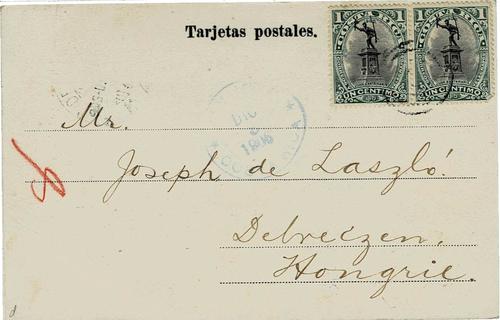 Tarjetas postales.
1 COSTA RICA 1 1 COSTA RICA 1
UN CENTIMO UN CENTIMO
DIC
1906
Mr.
Joseph de Laszló.
Debreczen,
Hongrie.